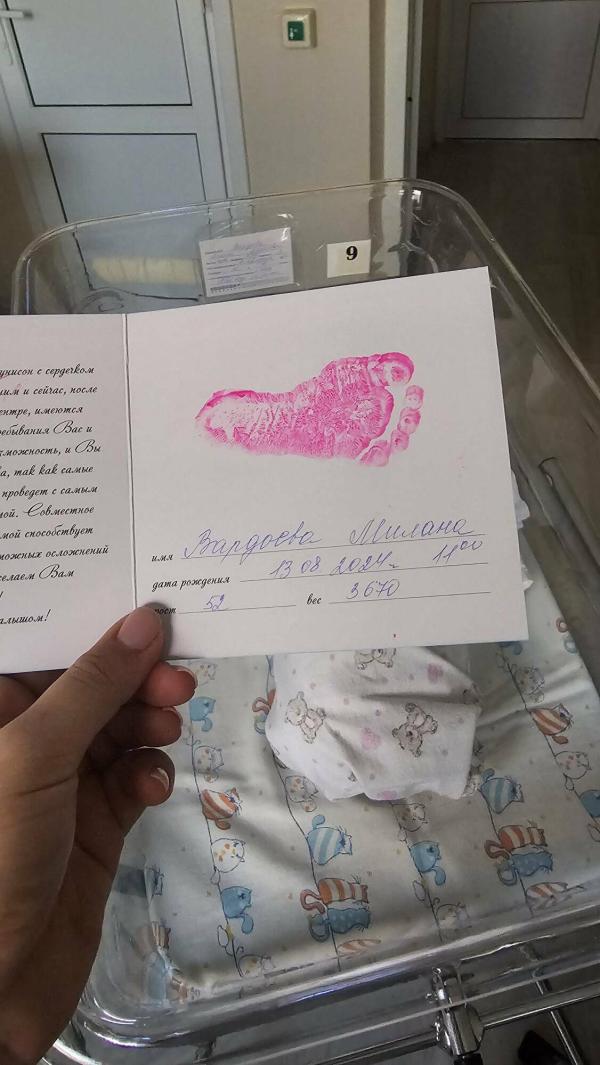 9
унисон с сердечком
ним и сейчас, после
ентре, имеются
ребывания Вас и
зможность, и Вы
ва, так как самые
проведет с самым
мой. Совместное
мой способствует
зможных осложнений
желаем Вам
!
алышом!
имя Вардоева Милана
дата рождения 13 08 2024г. 11⁰⁰
рост 52 вес 3670